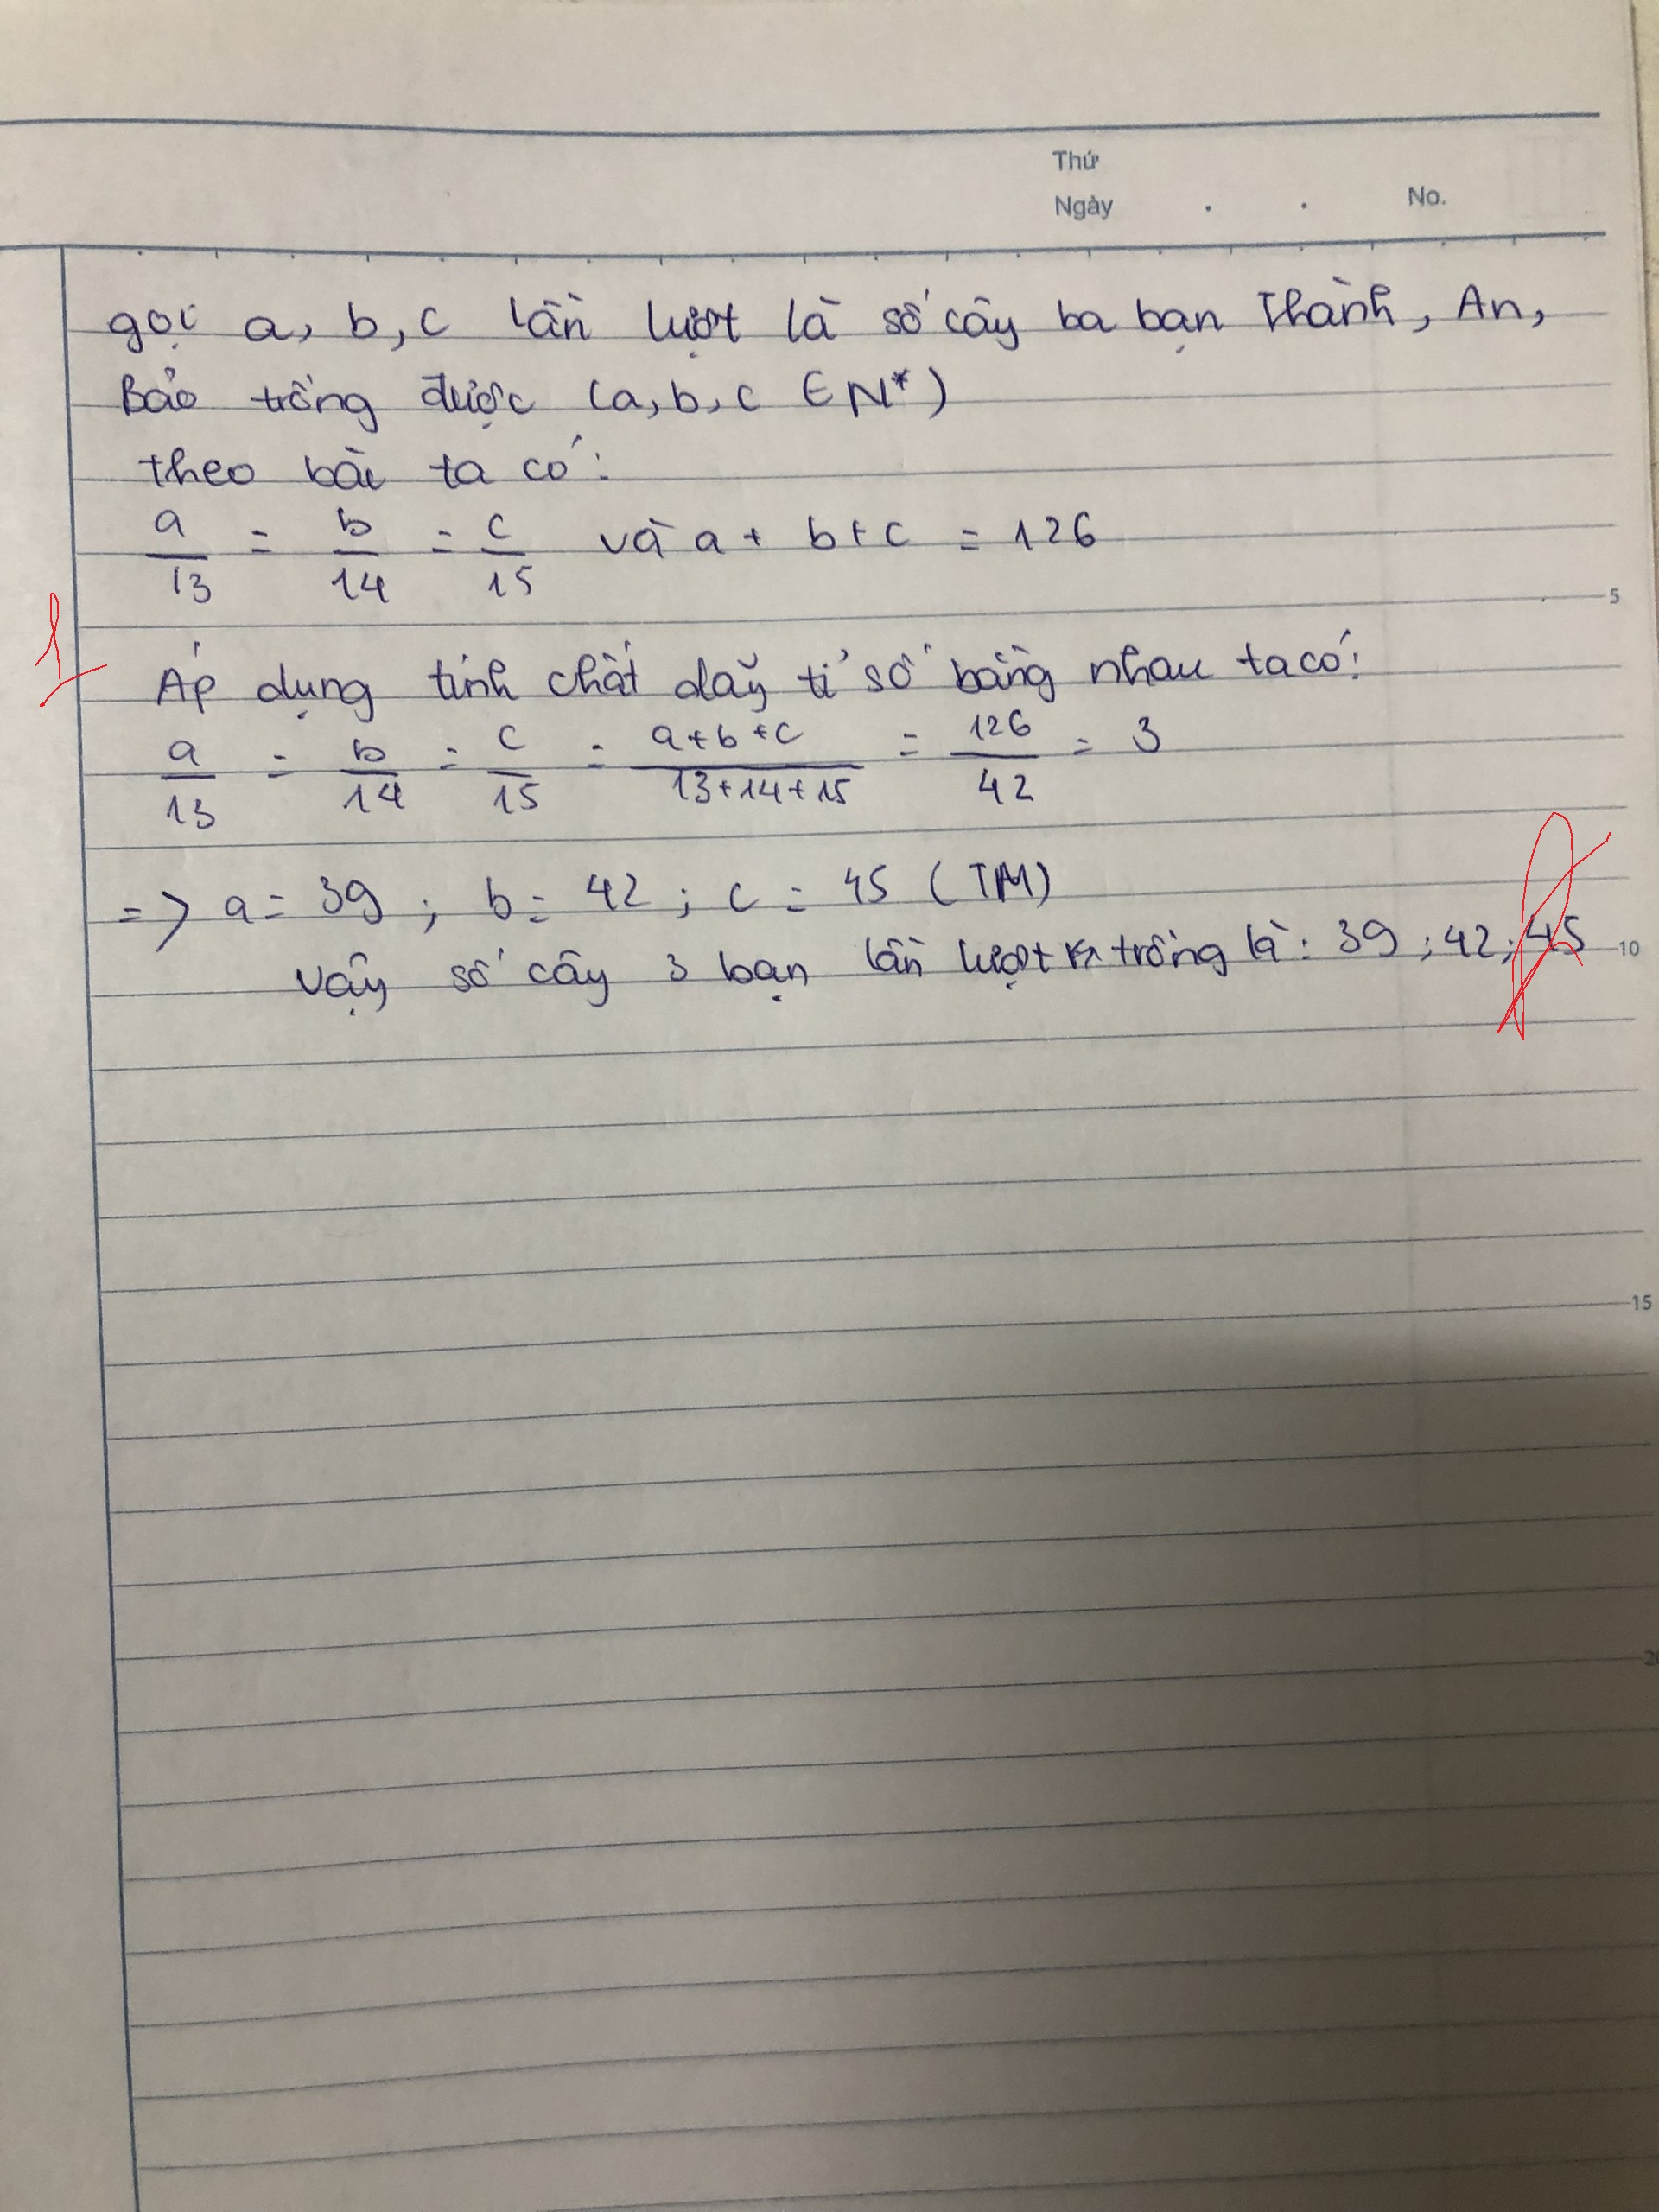 Thứ
Ngày . . No.
gọi a, b, c lần lượt là số cây ba bạn Thành, An,
Bảo trồng được (a, b, c ∈ N*)
theo bài ta có:
a/13 = b/14 = c/15 và a + b + c = 126
5
1
Áp dụng tính chất dãy tỉ số bằng nhau ta có:
a/13 = b/14 = c/15 = (a+b+c)/(13+14+15) = 126/42 = 3
=> a = 39 ; b = 42 ; c = 45 (TM)
Vậy số cây 3 bạn lần lượt trồng là : 39 ; 42 ; 45
10
15
20